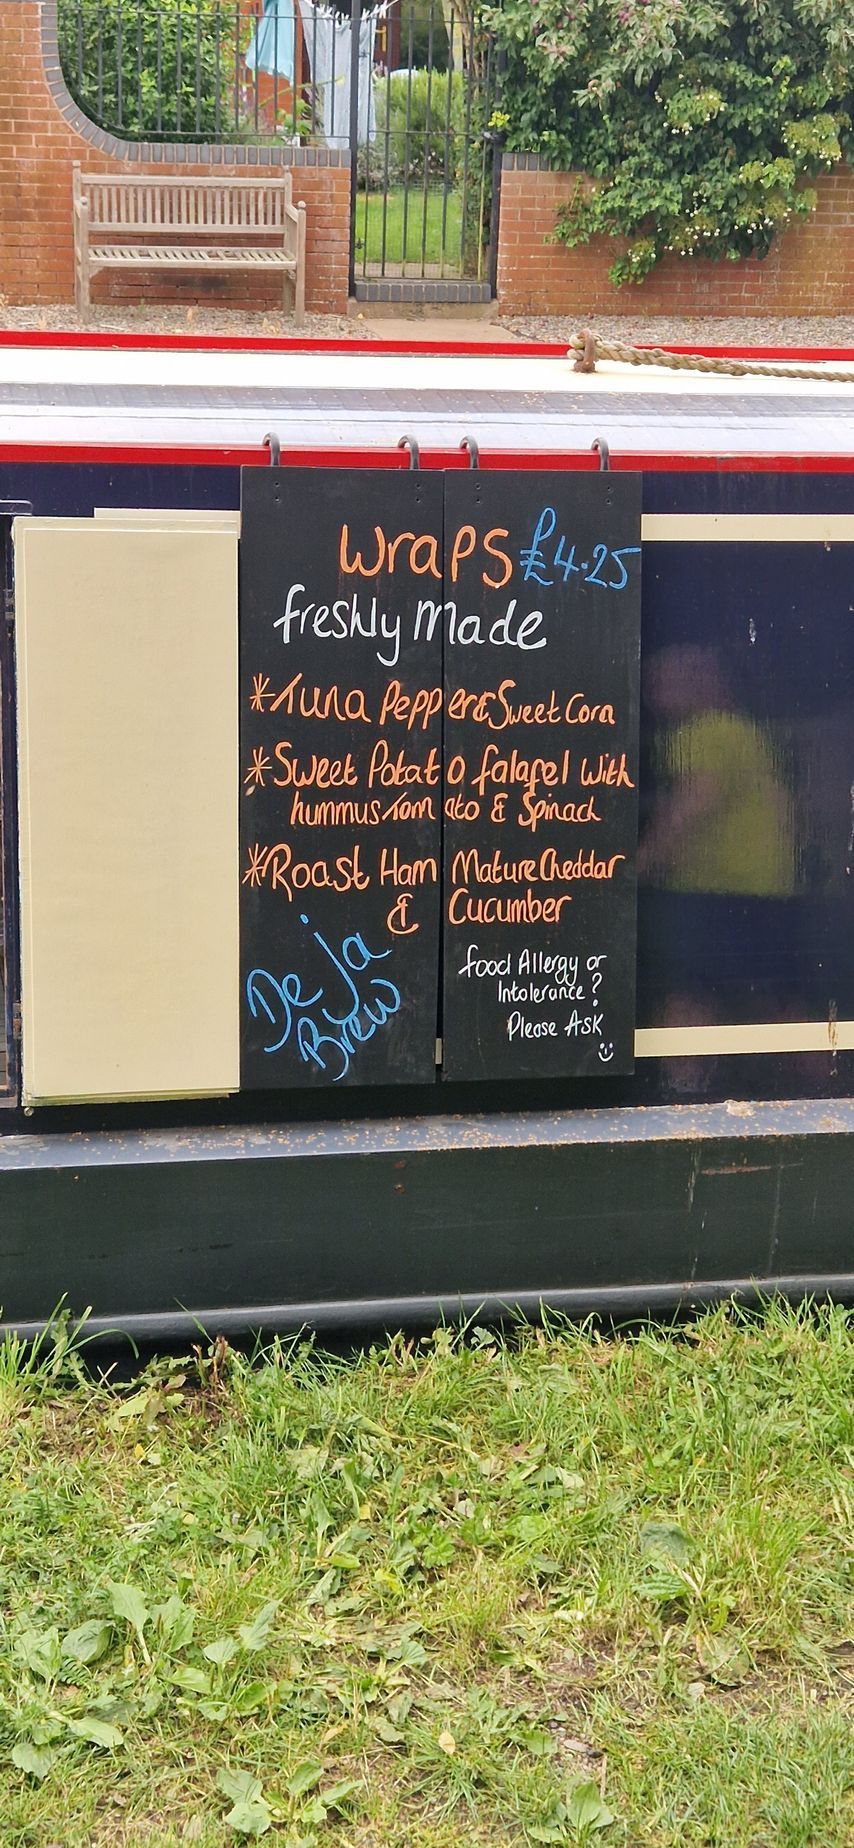 Wraps £4.25
freshly Made
*Tuna Pepper & Sweet Corn
*Sweet Potato falafel with
hummus Tomato & Spinach
*Roast Ham Mature Cheddar
& Cucumber
De ja
Brew
food Allergy or
Intolerance?
Please Ask